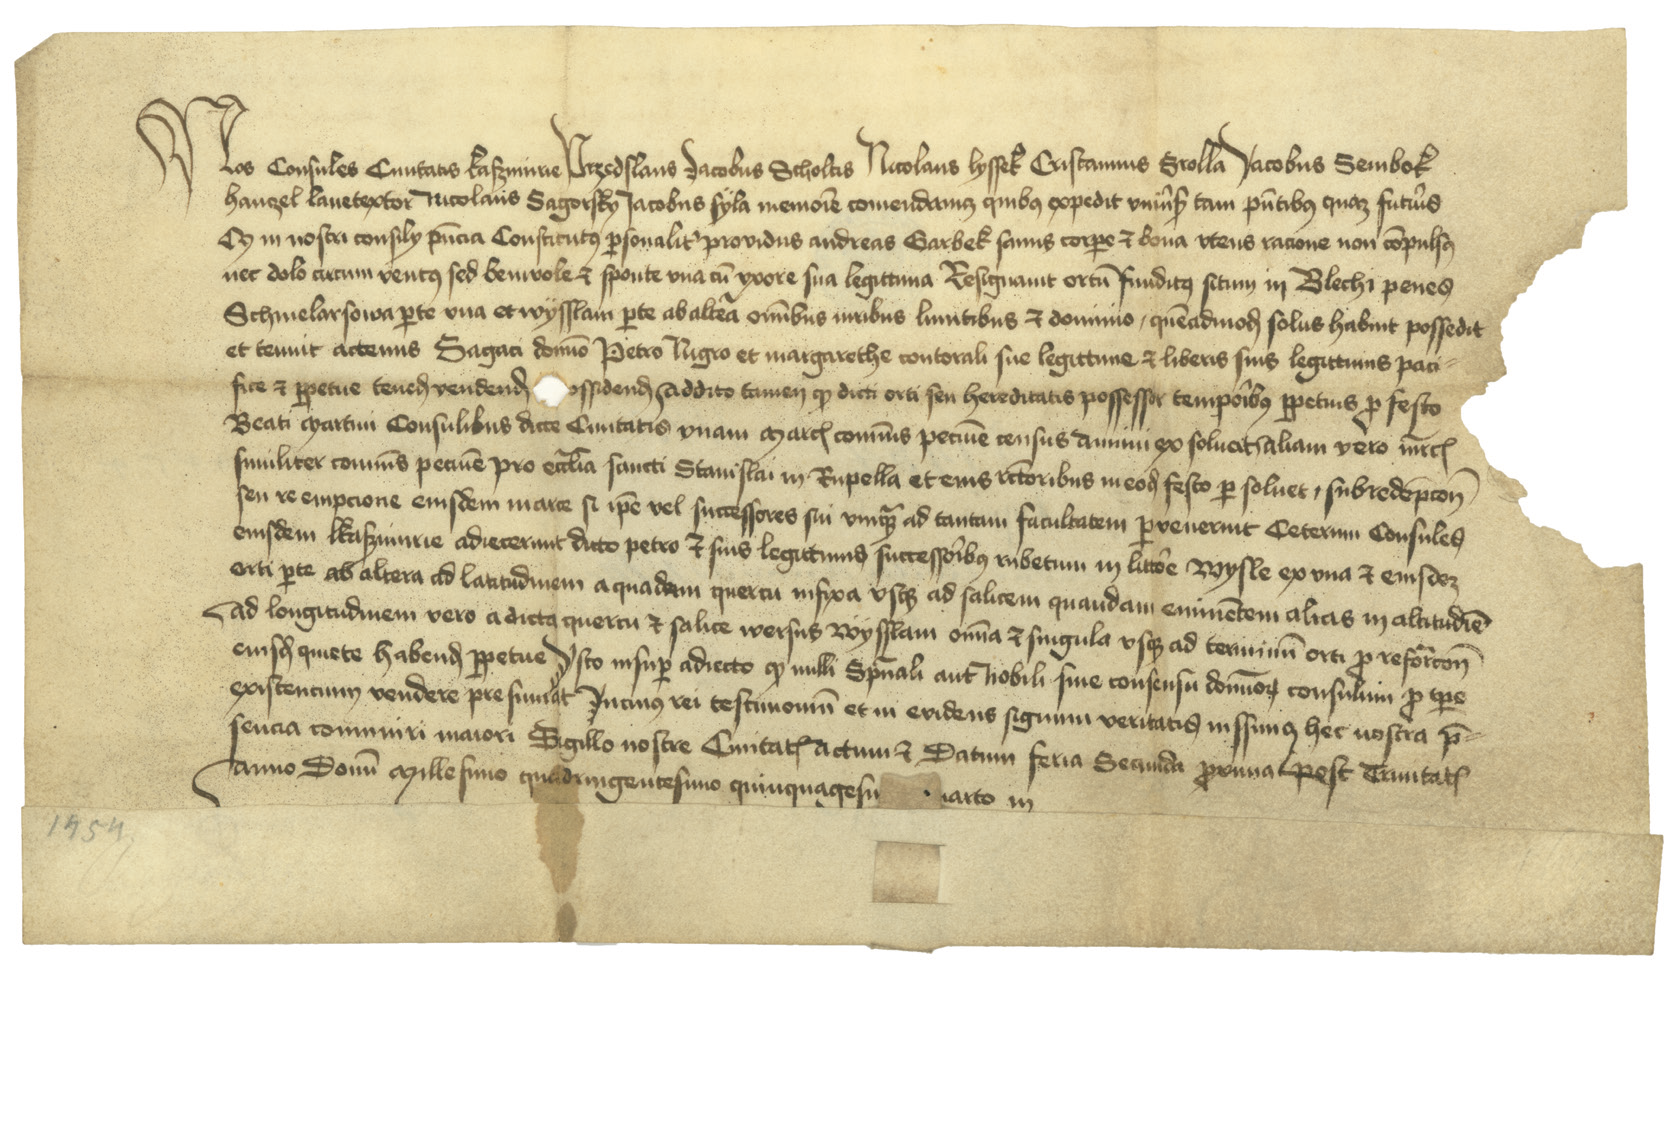 Nos Consules Ciuitatis kaszmirie Przedslaus Jacobus Scholtis Nicolaus lyssek Cristannus Grolla Jacobus Sembok
hanczel lanetextor Nicolaus Sagorsky Jacobus syla memorie comendamus quibus expedit vniuersis tam pntibus quam futuris
Cum in nostri consily pncia Constitutus personaliter prouidus andreas Garbek sanus corpore et bona vtens racione non compulsus
nec dolo circum ventus sed beniuole et sponte vna cum vxore sua legittima Resignauit ortum funditus situm in Blechi penes
Schmelarsowa parte vna et wysslam parte ab altera omnibus iuribus limitibus et dominio quemadmodum solus habuit possedit
et tenuit actenus Sagaci domino Petro Nigro et margarethe contorali sue legittime et liberis suis legittimis paci-
fice et perpetue tenendum vendendum ossidendum addito tamen quod dicti orti seu hereditatis possessor temporibus perpetuis pro festo
Beati Martini Consulibus dicte Ciuitatis vnam March comunis pecunie census annui ex soluet aliam vero march
similiter comunis pecunie pro ecclia sancti Stanislai in Rupella et eius rectoribus in eodem festo persoluet, sub redempcione
seu re empcione eiusdem marce si ipse vel successores sui vmquam ad tantam facultatem peruenerint Ceterum Consules
eiusdem kaszmirie adiecerunt dicto petro et suis legittimis successoribus rubetum in littore Wysle ex vna et eiusdem
orti parte ab altera ad latitudinem a quadam quercu infixa vsque ad salicem quandam eminentem alias in altitudine
ad longitudinem vero a dicta quercu et salice wersus Wysslam omnia et singula vsque ad terminum orti pro reformacione
eiusdem quiete habendum perpetue Isto insuper adiecto quod nulli Spirituali aut Nobili sine consensu dominorum consulum pro tempore
existencium vendere presumat In cuius rei testimonium et in euidens signum veritatis iussimus hec nostra pre-
sencia communiri maiori Sigillo nostre Ciuitatis Actum et Datum feria Secunda proxima post Trinitatis
Anno Domini Millesimo quadringentesimo quinquagesi uarto in
1454